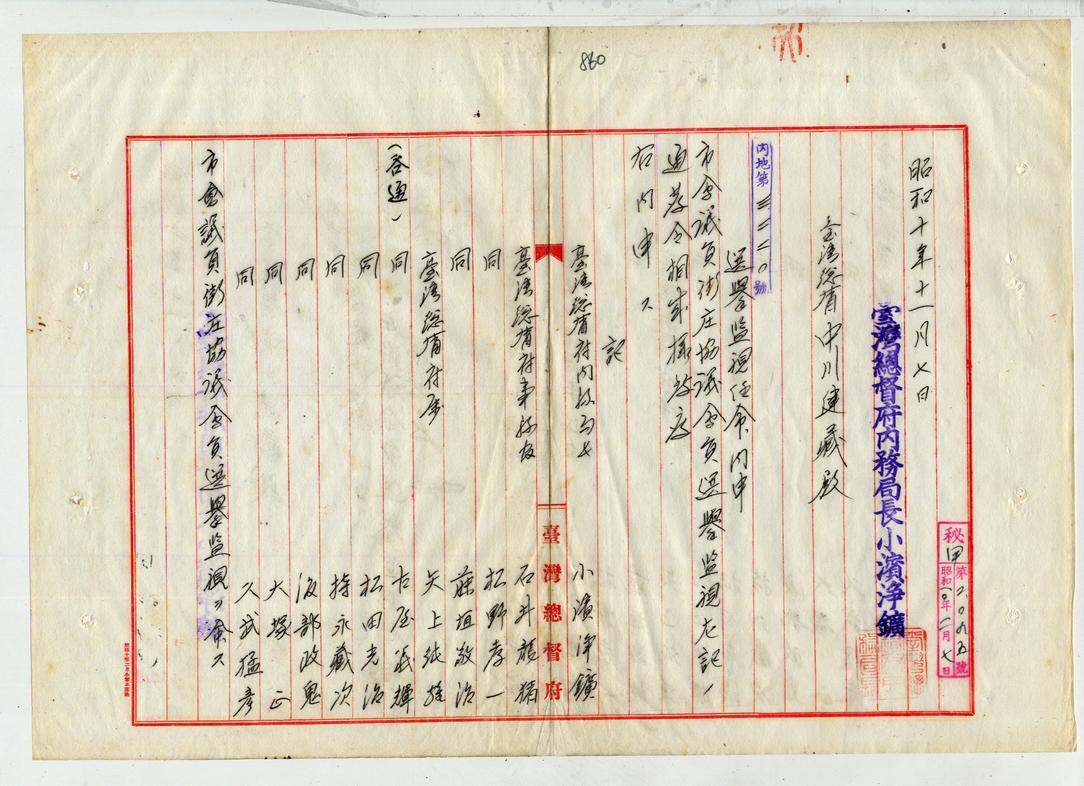 880
秘
甲第二〇九五號
昭和一〇年一一月七日
昭和十年十一月七日
臺灣總督府内務局長小濱浄鑛
臺湾総督中川健蔵殿
内地第三三三〇號
選舉監視任命内申
市会議員街庄協議会員選舉監視左記ノ
通発令相成様致度
右内申ス
記
臺湾総督府内務局長 小濱浄鑛
臺湾総督府事務官 石井龍猪
同 松野孝一
同 藤垣敬治
臺湾総督府属 矢上純雄
(各通) 同 古屋義輝
同 松田光治
同 持永藏次
同 阪部政鬼
同 大塚正
同 久武猛彦
市會議員街庄協議会員選舉監視ヲ命ス
臺灣總督府